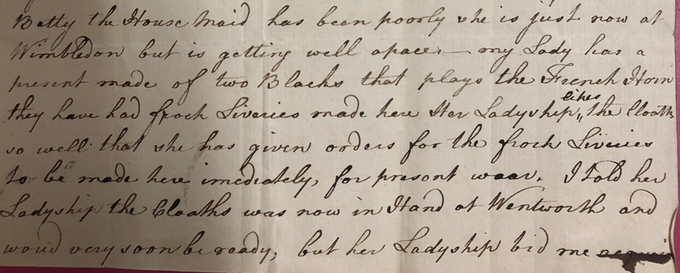 Betty the House Maid has been poorly she is just now at
Wimbledon but is getting well apace, – my Lady has a
present made of two Blacks that plays the French Horn
they have had frock Liveries made here Her Ladyship likes the Cloath
so well that she has given orders for the frock Liveries
to be made here imediately, for present waar. I told her
Ladyship the Cloaths was now in Hand at Wentworth and
woud very soon be ready, but her Ladyship bid me